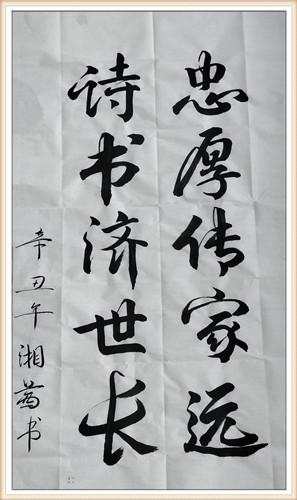 忠厚传家远
诗书济世长
辛丑年湘萍书